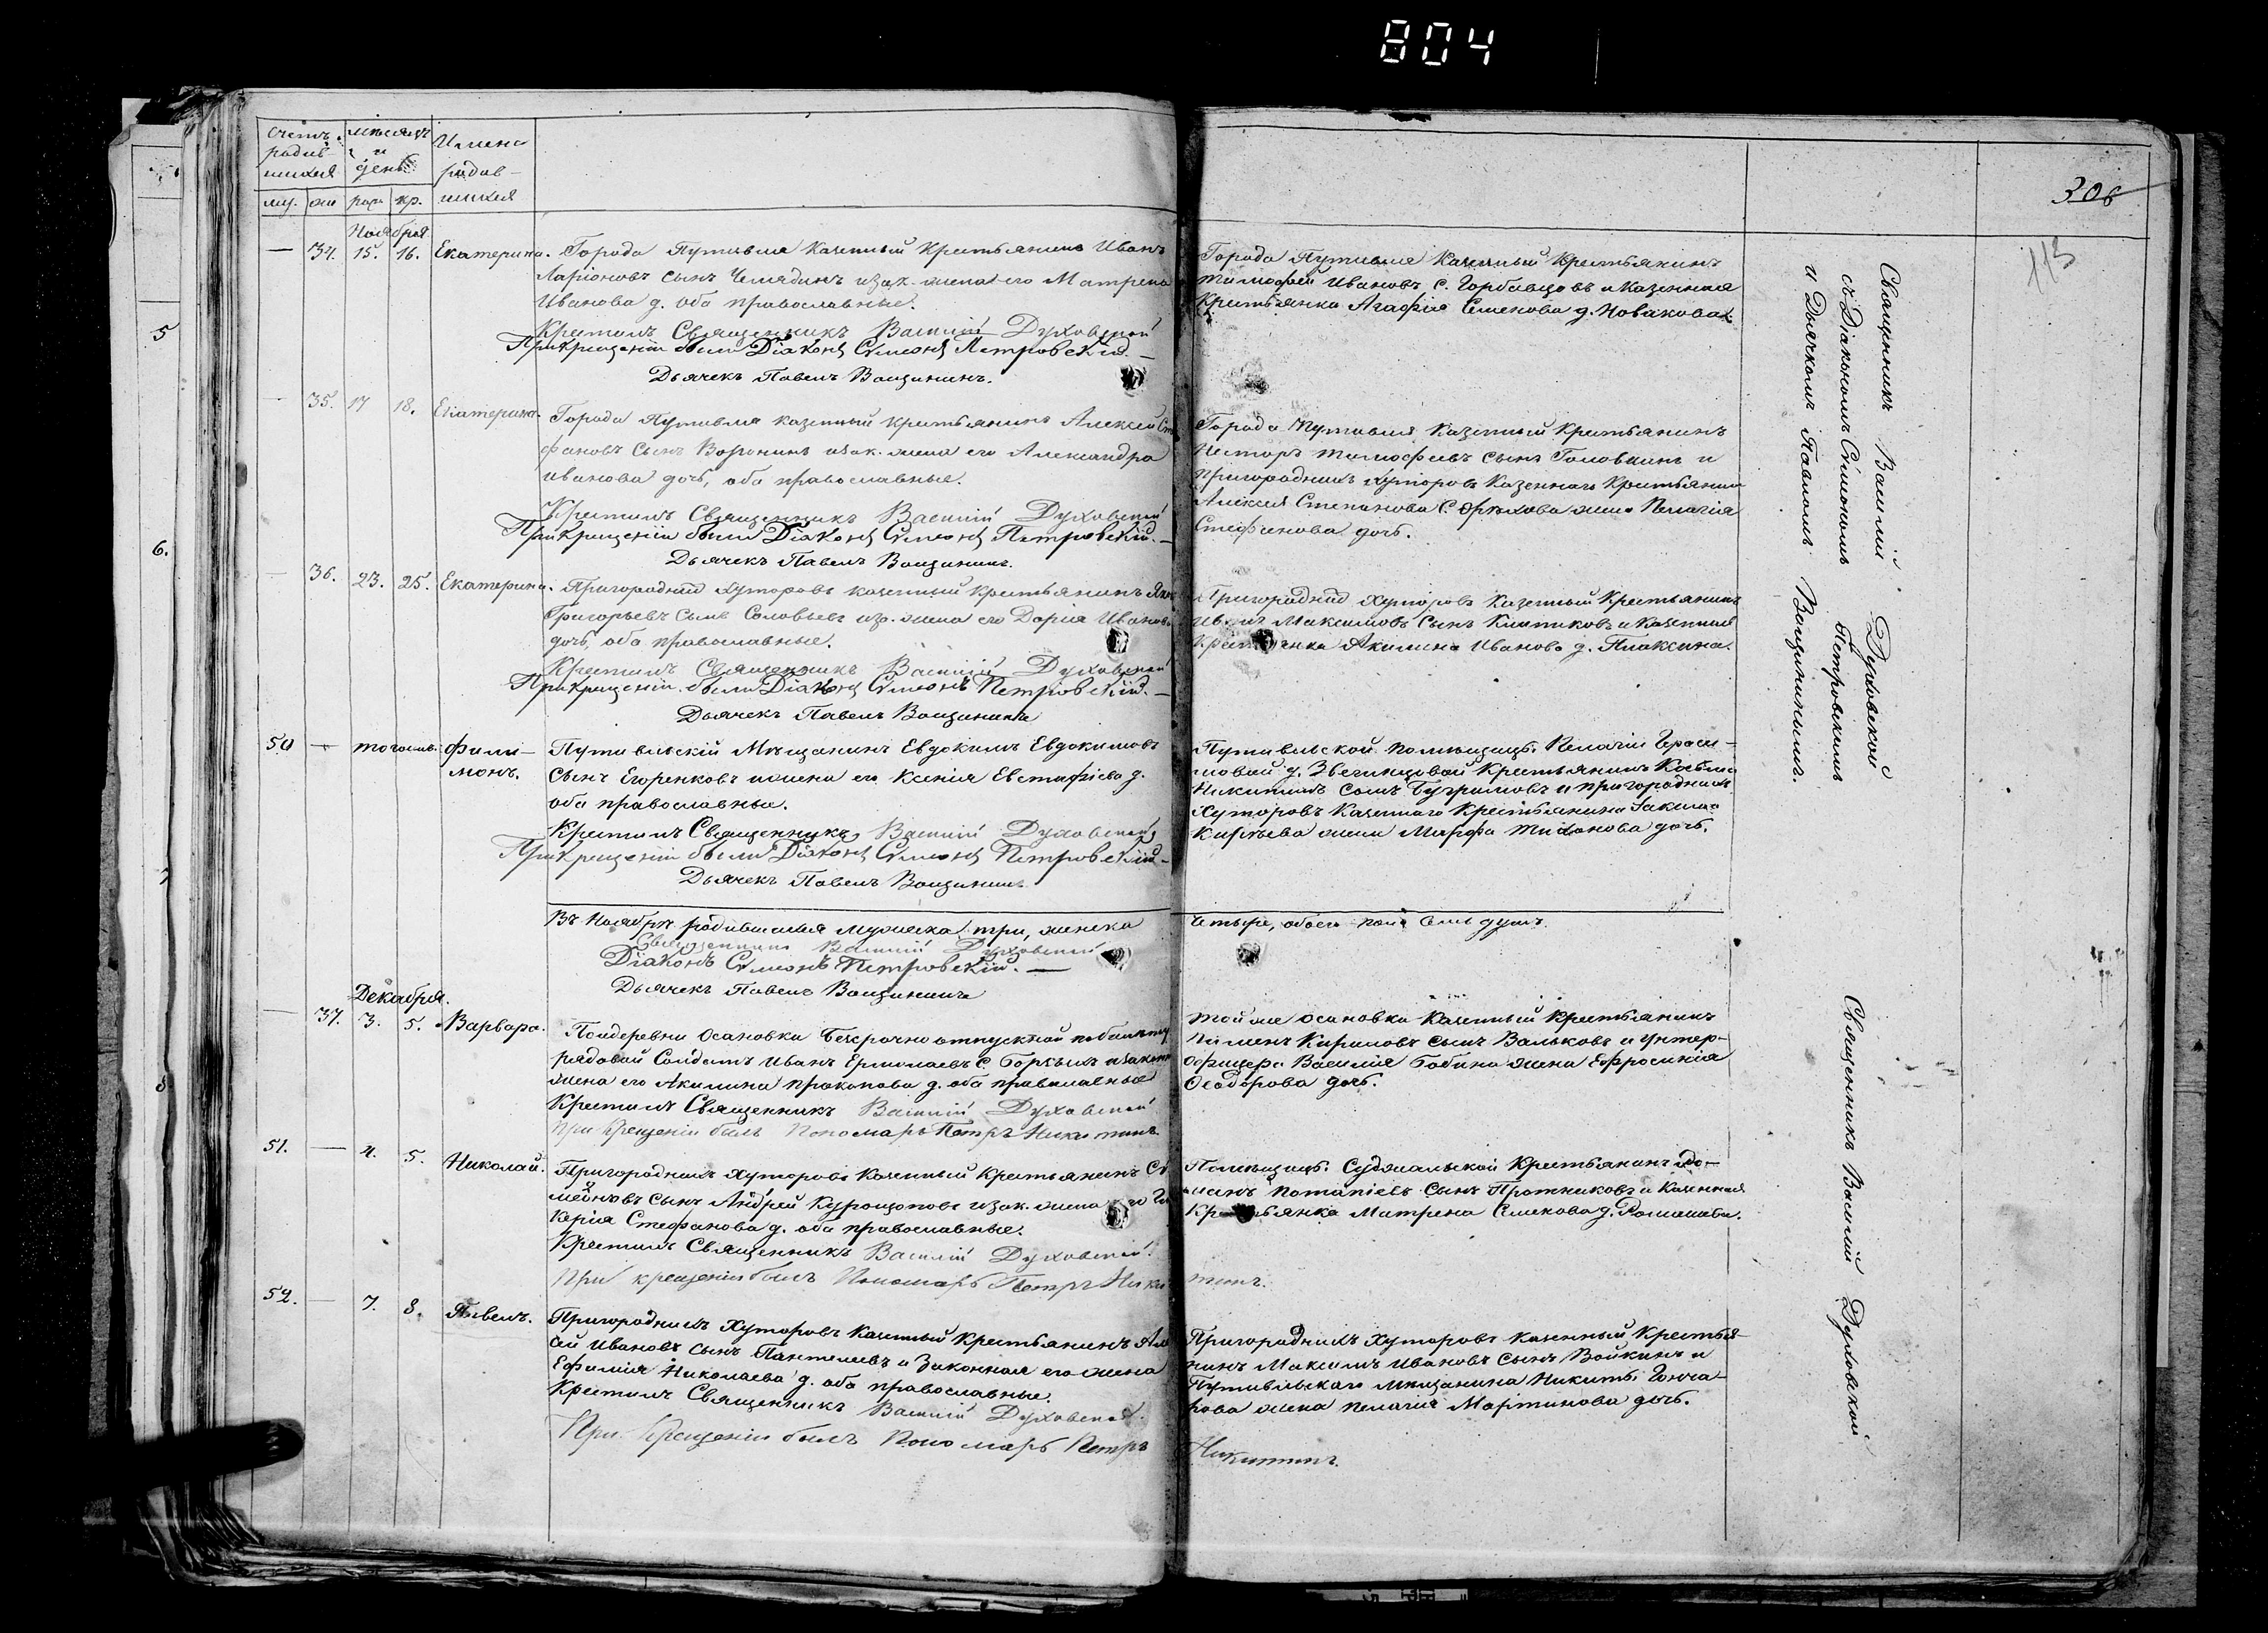 804
306
113
Счетъ родив-шихся
мѣсяцъ и день
Имена родив-шихся
му. же. рож. кр.
Ноября
— 34. 15. 16. Екатерина.
Города Путивля казенный крестьянинъ Иванъ
Ларіоновъ сынъ Челядинъ и зак. жена его Матрена
Иванова д. оба православные.
Крестилъ Священникъ Василій Духовской
При крещеніи были Діаконъ Сѵмеонъ Петровскій. —
Дьячекъ Павелъ Вощининъ.
Города Путивля Казенный Крестьянинъ
Тимофей Ивановъ с. Горбавцовъ и казенная
Крестьянка Агафія Семенова д. Новакова.
— 35. 17 18. Екатерина.
Города Путивля казенный крестьянинъ Алексей Сте
фановъ сынъ Воронинъ и зак. жена его Александра
Иванова дочь, оба православные.
Крестилъ Священникъ Василій Духовской
При крещеніи были Діаконъ Сѵмеонъ Петровскій. —
Дьячекъ Павелъ Вощининъ.
Города Путивля Казенный Крестьянинъ
Несторъ Тимофеевъ сынъ Головкинъ и
Пригороднихъ Хуторовъ Казеннаго Крестьянина
Алексея Степанова с. Орехова жена Пелагія
Стефанова дочь.
— 36. 23. 25. Екатерина.
Пригороднихъ Хуторовъ казенный крестьянинъ
Григорьевъ сынъ Соловьевъ и за. жена его Дарія Иванова
дочь, оба православные.
Крестилъ Священникъ Василій Духовской
При крещеніи были Діаконъ Сѵмеонъ Петровскій. —
Дьячекъ Павелъ Вощининъ
Пригороднихъ Хуторовъ Казенный Крестьянинъ
Иванъ Максимовъ сынъ и Казенная
Крестьянка Акилина Иванова д. Плаксина.
50 — тогожъ. Фили-
монъ.
Путивльскій Мѣщанинъ Евдокимъ Евдокимовъ
сынъ Егоренковъ и жена его Ксенія Евстафіева д.
оба православные.
Крестилъ Священникъ Василій Духовской
При крещеніи были Діаконъ Сѵмеонъ Петровскій —
Дьячекъ Павелъ Вощининъ.
Путивльской помѣщицы Пелагіи Гераси-
мовой д. Звегинцовой Крестьянинъ Косьма
Никитинъ сынъ и пригороднихъ
Хуторовъ Казеннаго Крестьянина Іакима
Кирѣева жена Марфа Тихонова дочь.
Въ Ноябрѣ родившихся мужеска три, женска
четыре, обоего пола семь душъ.
Священникъ Василій Духовской
Діаконъ Сѵмеонъ Петровскій. —
Дьячекъ Павелъ Вощининъ
Священникъ Василій Духовской
съ Діакономъ Сѵмеономъ Петровскимъ
и Дьячкомъ Павломъ Вощининымъ.
Декабря.
— 37. 3. 5. Варвара.
деревни Осановки Безсрочно отпускной по билету
рядовой Солдатъ Иванъ Ермолаевъ с. и законн
жена его Акилина Прокопова д. оба православные
Крестилъ Священникъ Василій Духовской
При крещеніи былъ Пономарь Петръ Никитинъ.
Той же Осановки Казенный Крестьянинъ
Пименъ Кириловъ сынъ Вальковъ и Унтер-
Офицера Василія Бабина жена Ефросинія
Ѳеодорова дочь.
51. — 4. 5. Николай.
Пригороднихъ Хуторовъ Казенный Крестьянинъ Сѵ
меоновъ сынъ Андрей и зак. жена его Гли
керія Стефанова д. оба православные.
Крестилъ Священникъ Василій Духовской.
При крещеніи былъ Пономарь Петръ Ники
тинъ.
Помѣщицы Суджальской Крестьянинъ Ро-
манъ Потапіевъ сынъ и Казенная
Крестьянка Матрена Семенова д. Ромашева.
52. — 7. 8. Павелъ.
Пригороднихъ Хуторовъ Казенный Крестьянинъ Але
ѣй Ивановъ сынъ Пантелеевъ и Законная его жена
Ефимія Николаева д. оба православные.
Крестилъ Священникъ Василій Духовской.
При Крещеніи былъ Пономарь Петръ
Никитинъ.
Пригороднихъ Хуторовъ Казенный Крестья-
нинъ Максимъ Ивановъ сынъ Войкинъ и
Путивльскаго мѣщанина Никиты Гонча-
рова жена Пелагія Мартинова дочь.
Священникъ Василій Духовской
5
6.
8